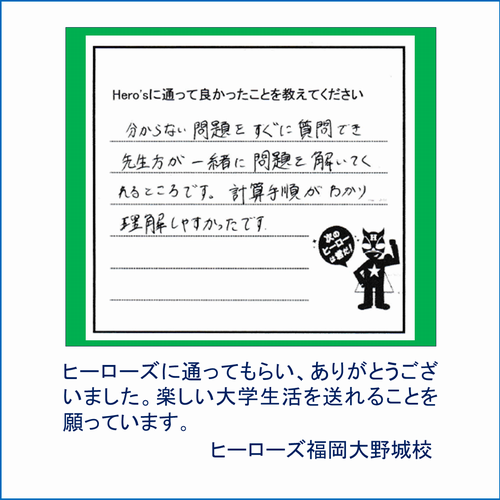 Hero'sに通って良かったことを教えてください
分からない問題をすぐに質問でき
先生方が一緒に問題を解いてく
れるところです。計算手順がわかり
理解しやすかったです
次の
ヒーロー
は君だ!
ヒーローズに通ってもらい、ありがとうござ
いました。楽しい大学生活を送れることを
願っています。
ヒーローズ福岡大野城校